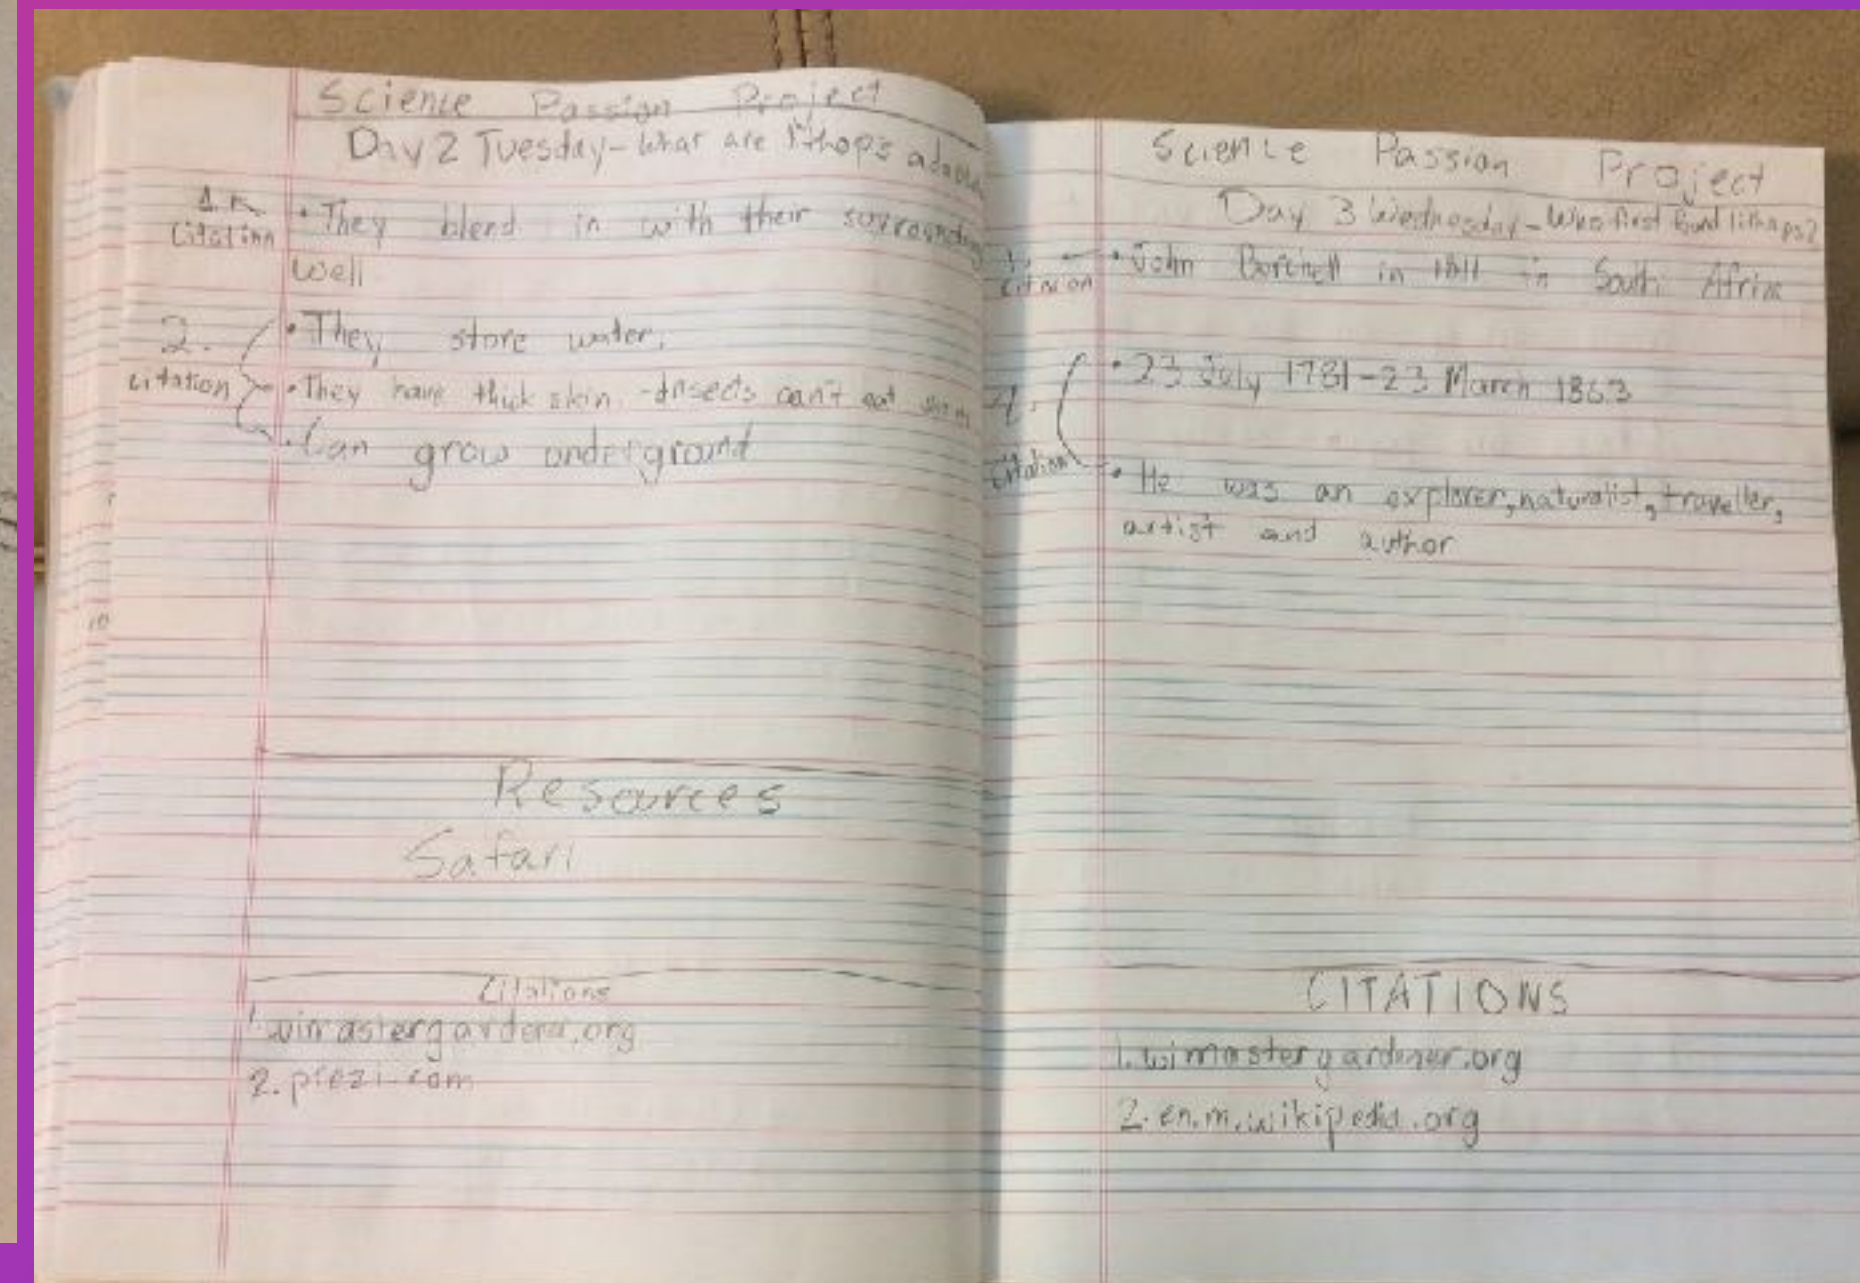 Science Passion Project
Day 2 Tuesday - What are lithop's
1.
Citation
• They blend in with their surrounding
well
2.
citation
• They store water.
• They have thick skin - Insects can't eat
• Can grow underground
Resources
Safari
Citations
1. wimastergardener.org
2. prezi.com
Science Passion Project
Day 3 Wednesday - Who first found lithops?
1.
citation
• John Burchell in 1811 in South Africa
2.
Citation
• 23 July 1781 - 23 March 1863
• He was an explorer, naturalist, traveller,
artist and author
CITATIONS
1. wimastergardener.org
2. en.m.wikipedia.org